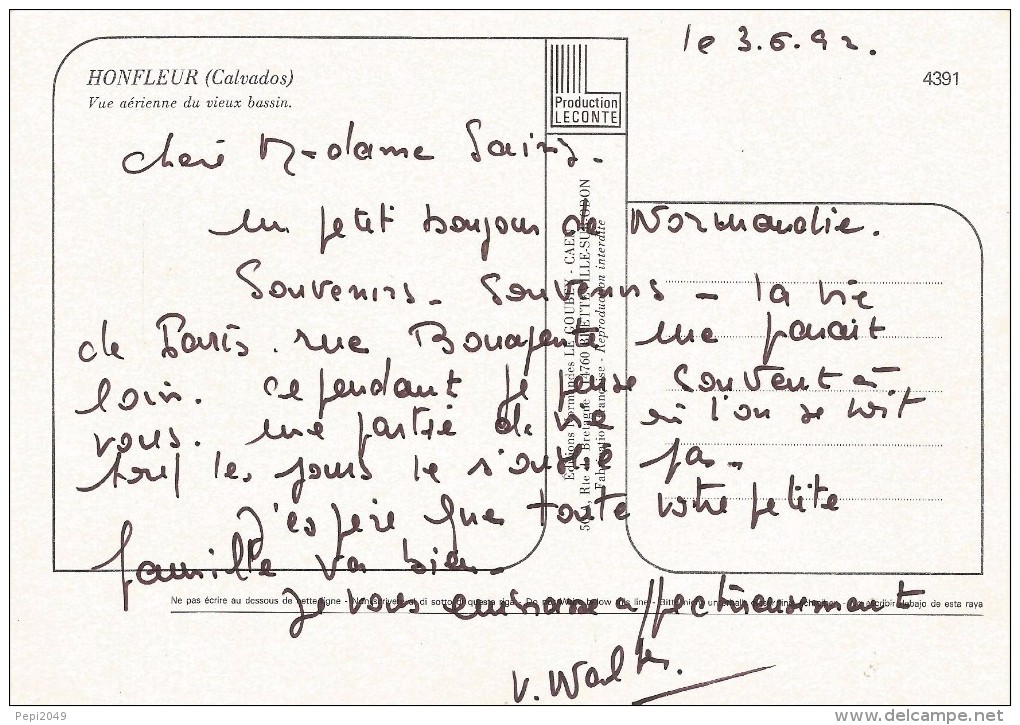 le 3.6.92.
HONFLEUR (Calvados)
Vue aérienne du vieux bassin.
Production
LECONTE
4391
chère Madame
un petit bonjour de Normandie.
Souvenirs - Souvenirs - la vie
de Paris. rue Bonaparte me parait
loin. cependant je pense souvent à
vous. une partie de vie où l'on se voit
les jours ne s'oublie pas.
J'espère que toute votre petite
famille va bien.
Je vous embrasse affectueusement
V. Walter.
Editions Normandes LE GOUBEY - CAEN
Rte de Bretagne - 14760 BRETTEVILLE-SUR-ODON
Fabrication Française - Reproduction interdite
Ne pas écrire au dessous de cette ligne - Non scrivere al di sotto di questa riga - Do not write below this line - Bitte nicht unterhalb
debajo de esta raya
Pepi2049
www.delcampe.net